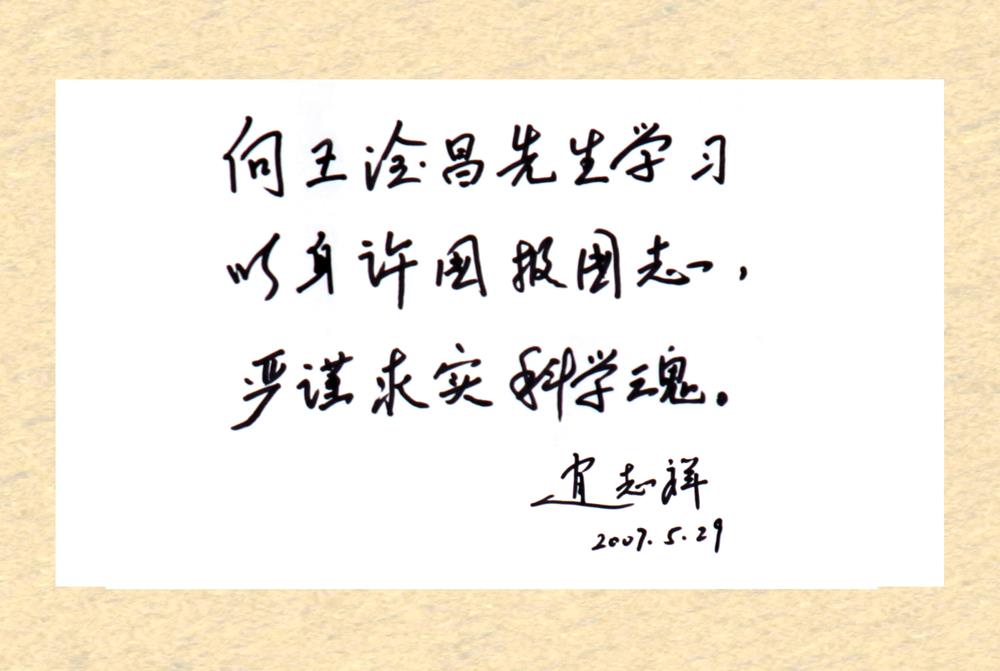 向王淦昌先生学习
以身许国报国志,
严谨求实科学魂。
志祥
2007.5.29